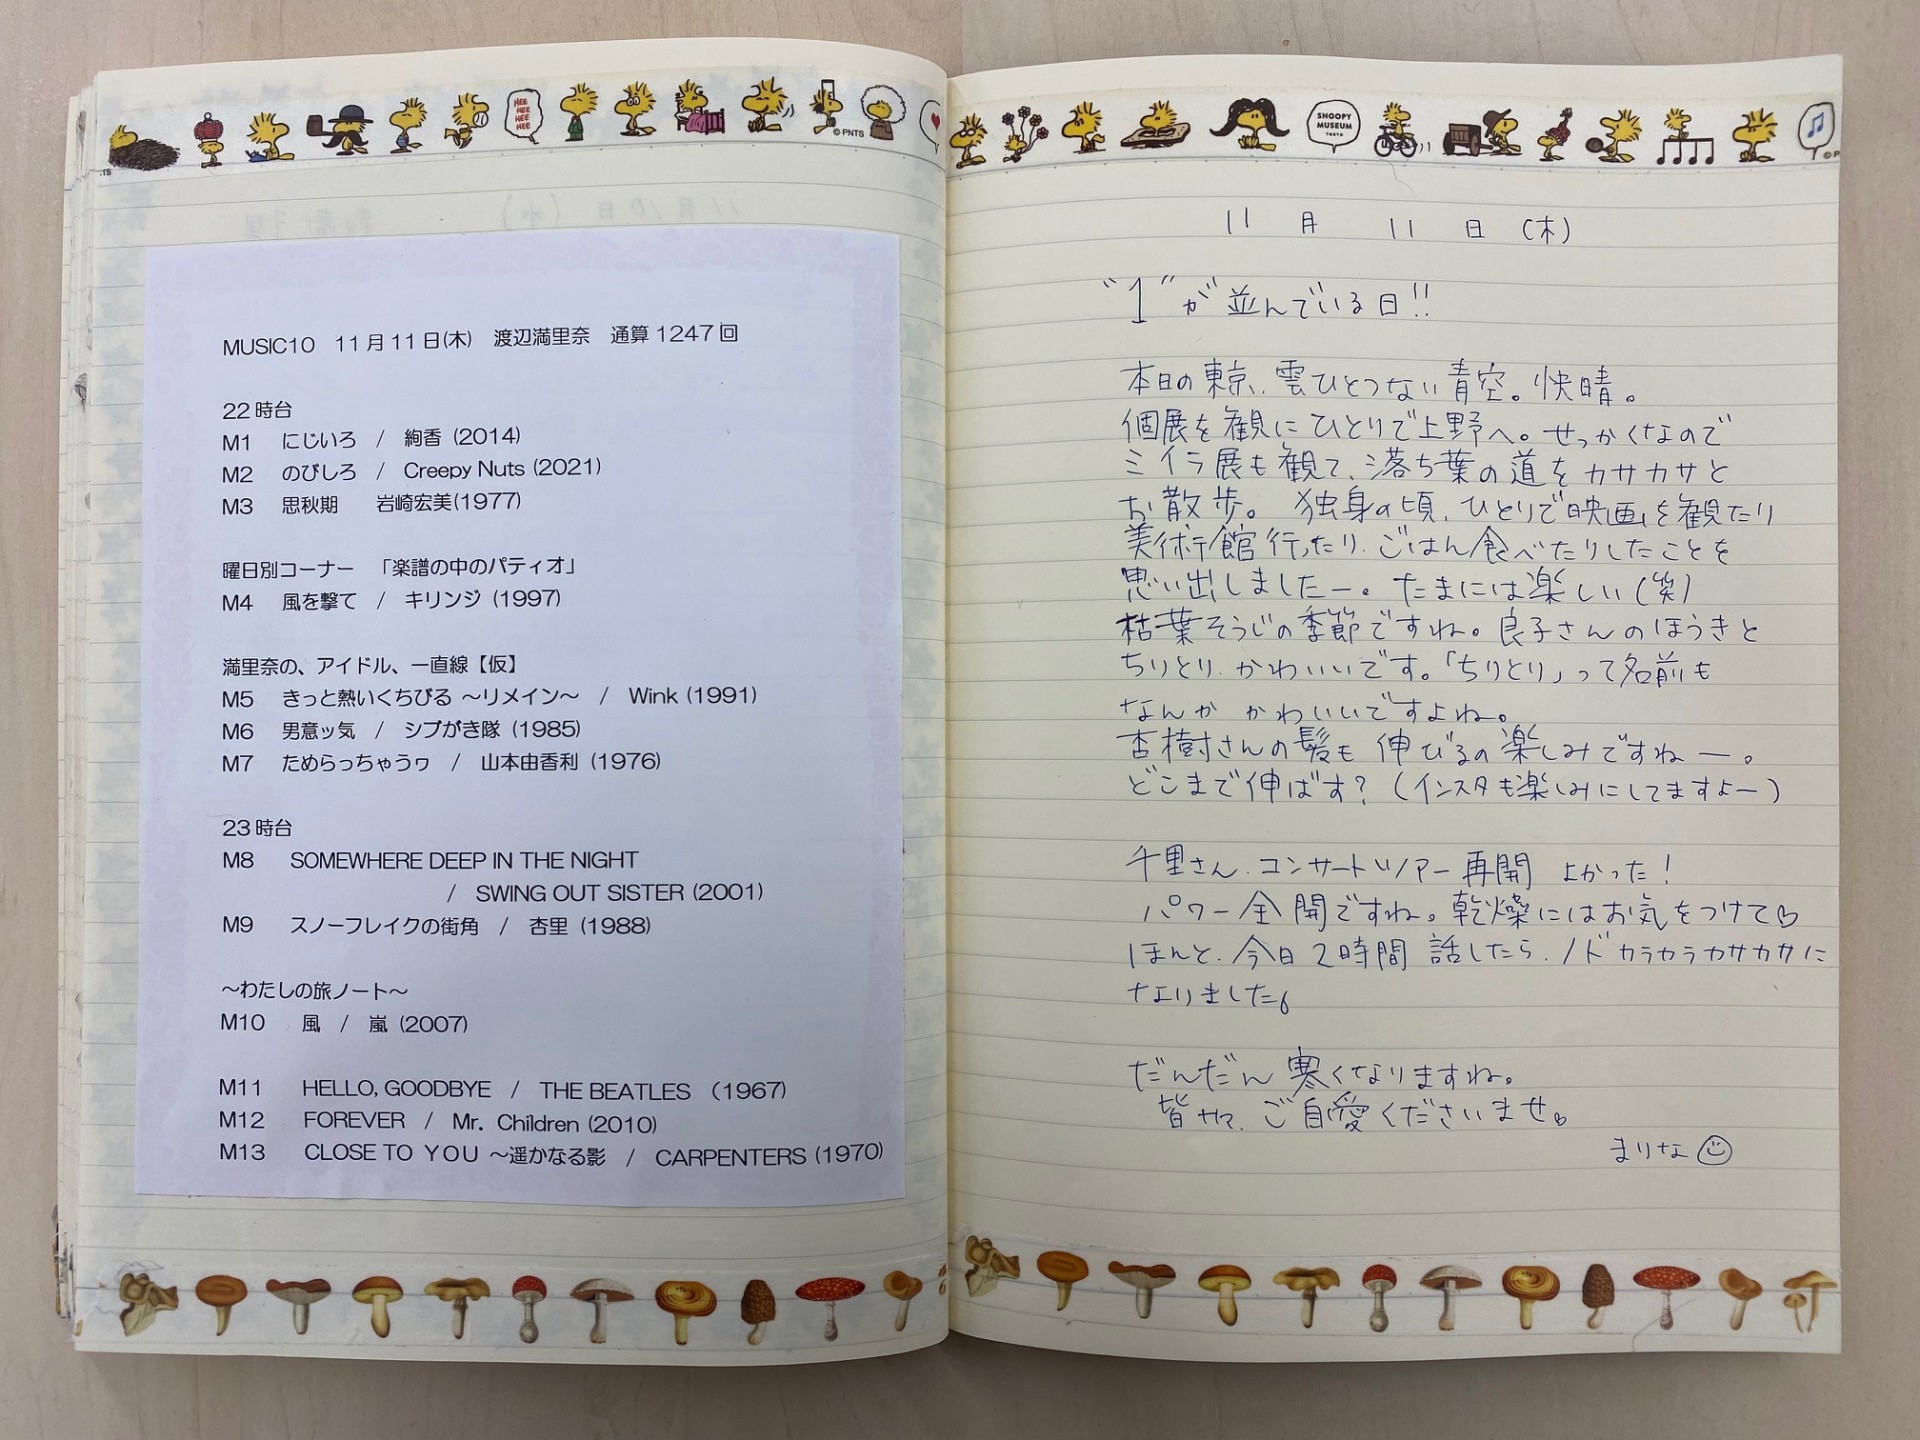 HEE HEE HEE HEE
© PNTS
MUSIC10　11月11日(木)　渡辺満里奈　通算1247回
22時台
M1　にじいろ　/　絢香 (2014)
M2　のびしろ　/　Creepy Nuts (2021)
M3　思秋期　　岩崎宏美(1977)
曜日別コーナー　「楽譜の中のパティオ」
M4　風を撃て　/　キリンジ (1997)
満里奈の、アイドル、一直線【仮】
M5　きっと熱いくちびる ～リメイン～　/　Wink (1991)
M6　男意ッ気　/　シブがき隊 (1985)
M7　ためらっちゃうヮ　/　山本由香利 (1976)
23時台
M8　SOMEWHERE DEEP IN THE NIGHT
/　SWING OUT SISTER (2001)
M9　スノーフレイクの街角　/　杏里 (1988)
～わたしの旅ノート～
M10　風　/　嵐 (2007)
M11　HELLO, GOODBYE　/　THE BEATLES　(1967)
M12　FOREVER　/　Mr. Children (2010)
M13　CLOSE TO YOU ～遥かなる影　/　CARPENTERS (1970)
SNOOPY MUSEUM TOKYO
11　月　11　日　(木)
"1"が並んでいる日!!
本日の東京、雲ひとつない青空。快晴。
個展を観にひとりで上野へ。せっかくなので
ミイラ展も観て、落ち葉の道をカサカサと
お散歩。　独身の頃、ひとりで映画を観たり
美術館行ったり、ごはん食べたりしたことを
思い出しましたー。たまには楽しい(笑)
枯葉そうじの季節ですね。良子さんのほうきと
ちりとり、かわいいです。「ちりとり」って名前も
なんか かわいいですよね。
杏樹さんの髪も 伸びるの楽しみですねー。
どこまで伸ばす? (インスタも楽しみにしてますよー)
千里さん、コンサートツアー再開 よかった!
パワー全開ですね。乾燥にはお気をつけて♡
ほんと、今日2時間 話したら、ノドカラカラカサカサに
なりました
だんだん寒くなりますね。
皆サマ、ご自愛くださいませ。
まりな☺